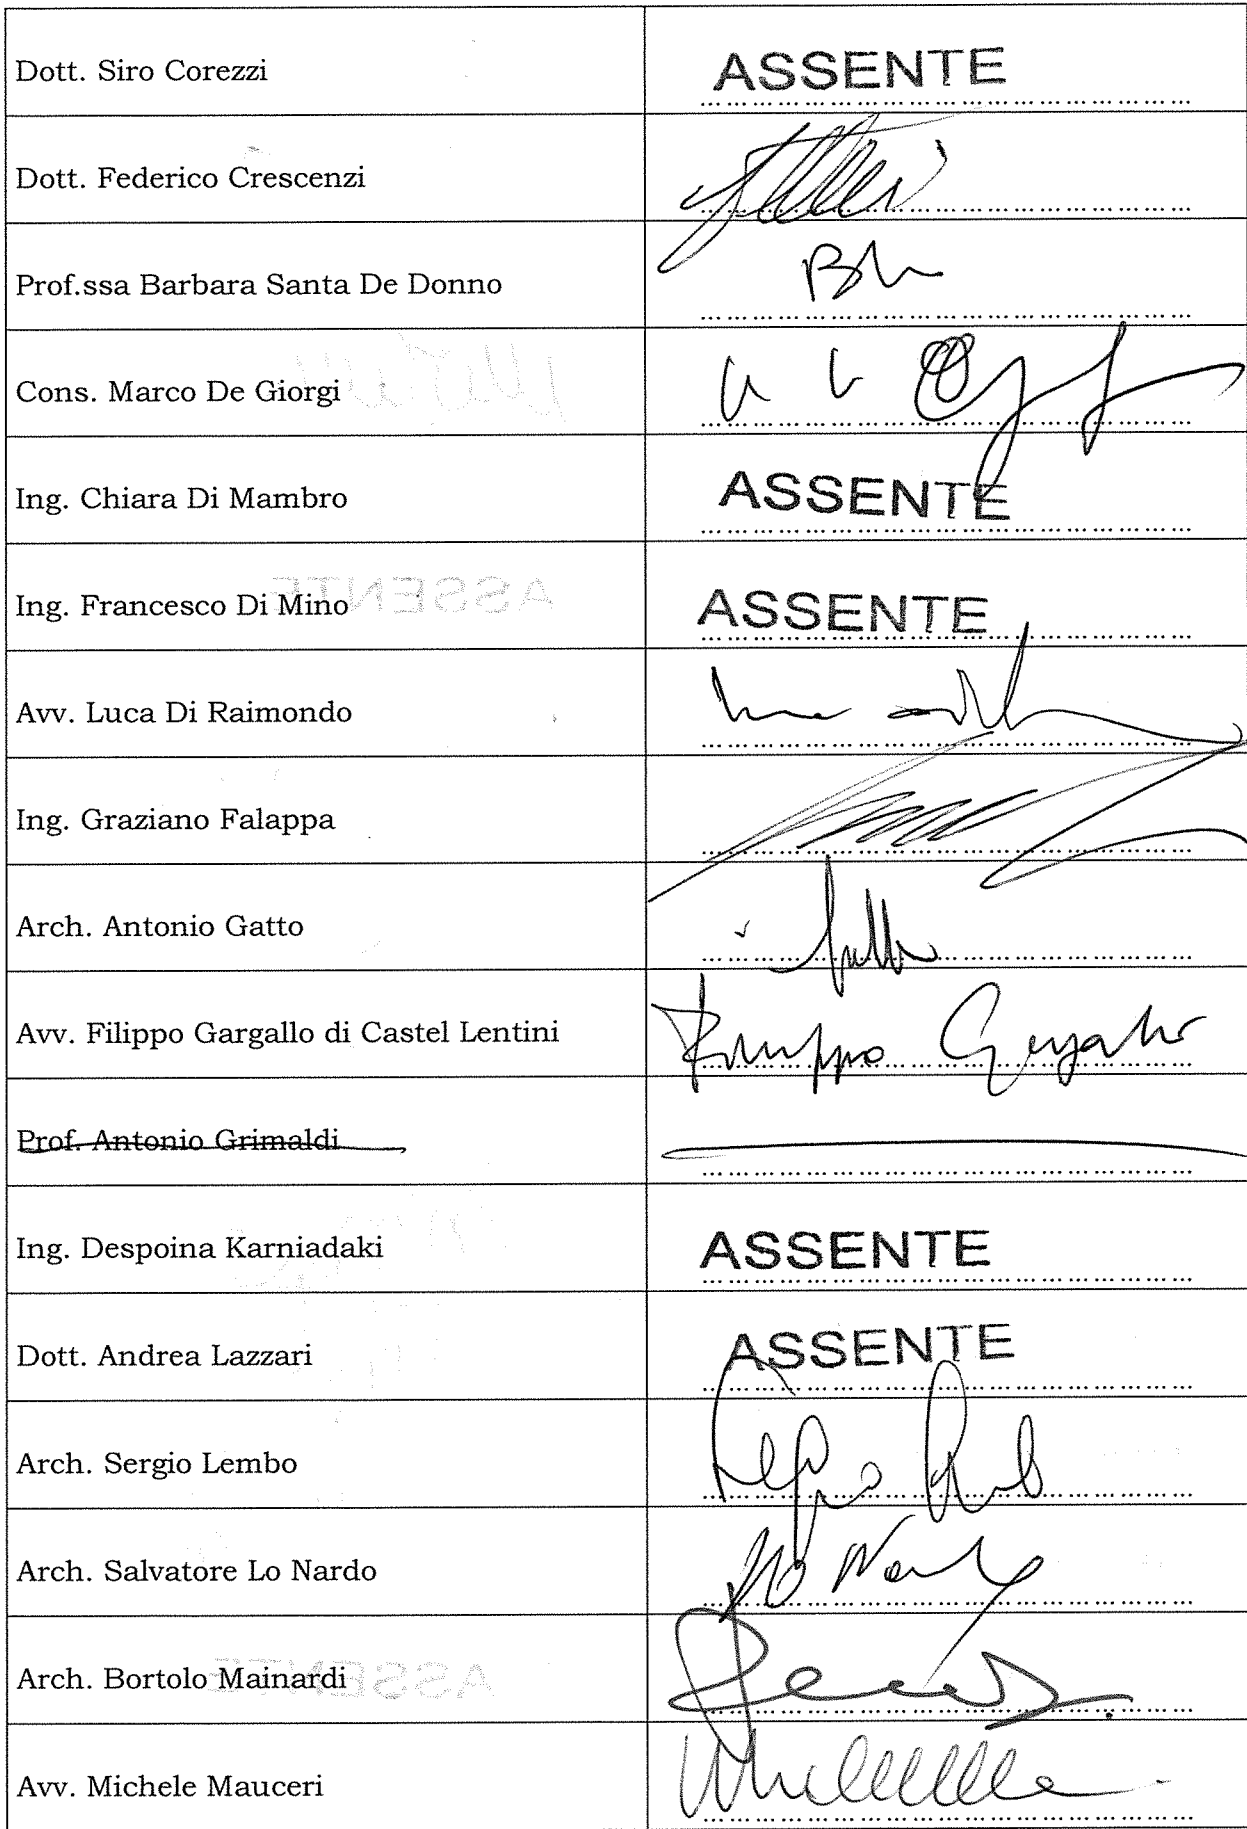 Dott. Siro Corezzi ASSENTE
Dott. Federico Crescenzi
Prof.ssa Barbara Santa De Donno
Cons. Marco De Giorgi
Ing. Chiara Di Mambro ASSENTE
Ing. Francesco Di Mino ASSENTE
Avv. Luca Di Raimondo
Ing. Graziano Falappa
Arch. Antonio Gatto
Avv. Filippo Gargallo di Castel Lentini Filippo Gargallo
Prof. Antonio Grimaldi
Ing. Despoina Karniadaki ASSENTE
Dott. Andrea Lazzari ASSENTE
Arch. Sergio Lembo
Arch. Salvatore Lo Nardo Lo Nardo
Arch. Bortolo Mainardi
Avv. Michele Mauceri